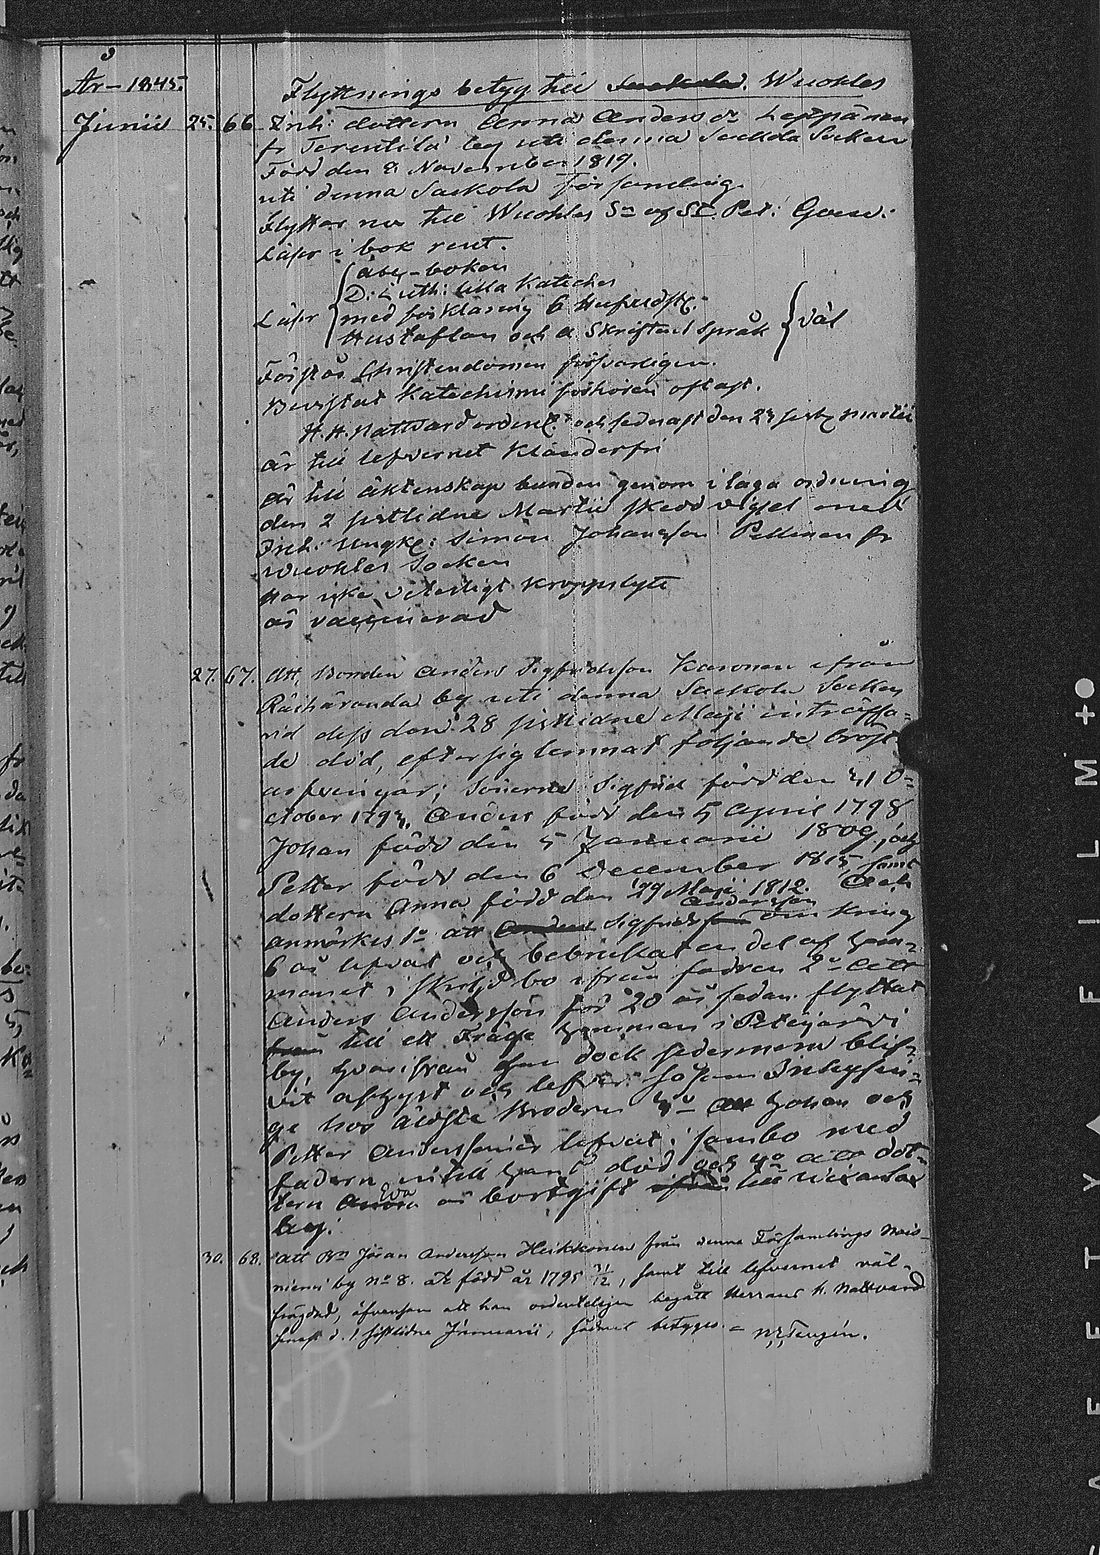 År 1845.
Flyttnings betyg till Wuokles
Junii 25. 66. Inh: dottern Anna Andersdr Leppänen
fr Terentilä by uti denna Sackola Socken
Född den 8 November 1819.
uti denna Sackola församling.
Flyttar nu till Wuokles Sn af St Pet: Guv:
Läser i bok rent.
abc-boken
D: Luth: lilla Kateches
Läser med förklaring
Hustaflan och a. Skriftens språk väl
Förstår Christendomen försvarligen.
Bevistat Katechismi förhören oftast.
H. H. Nattvard ordentl. och sednast den 23 Martii
är till lefvernet klanderfri
är till äktenskap bunden genom i laga ordning
den 2 sistlidne Martii skedd vigsel med
Inh: Ungk: Simon Johansson Pellinen fr
Wuokles Socken
Har icke veterligt kroppslyte
är vaccinerad
27. 67. Att Bonden Anders Sigfridsson Karonen ifrån
by uti denna Sackola Socken
vid dess den 28 sistlidne Maji inträffa-
de död, efter sig lemnat följande bröst
arfvingar; Sönerne Sigfrid född den O-
ctober Anders född den 5 April 1798
Johan född den 5 Januarii 1809, och
Petter född den 6 December 1815, samt
dottern Anna född den 29 Maji 1812. Och
anmärkes 1o att Sigfrid Andersson omkring
6 år lefvat och bebrukat en del af hem-
manet i skiljd bo ifrån fadren 2o att
Anders Andersson för 20 år sedan flyttat
till ett Frälse hemman i Petäjärvi
by, hvarifrån han dock sedermera blif-
vit afhyst och lefver såsom Inhysen-
ge hos äldste Brodern 3o att Johan och
Petter Anderssöner lefvat i sambo med
fadern intill hans död och 4o att dot-
tern Eva är bortgift till
by.
30. 68. Att Bn Jöran Andersson Heikkonen från denna Församlings
by No 8. är född år 1795, samt till lefvernet väl-
frägdad, äfvensom att han ordenteligen begått Herrans h. Nattvard
senast d. 1 sistlidne Januarii, sådant betygas